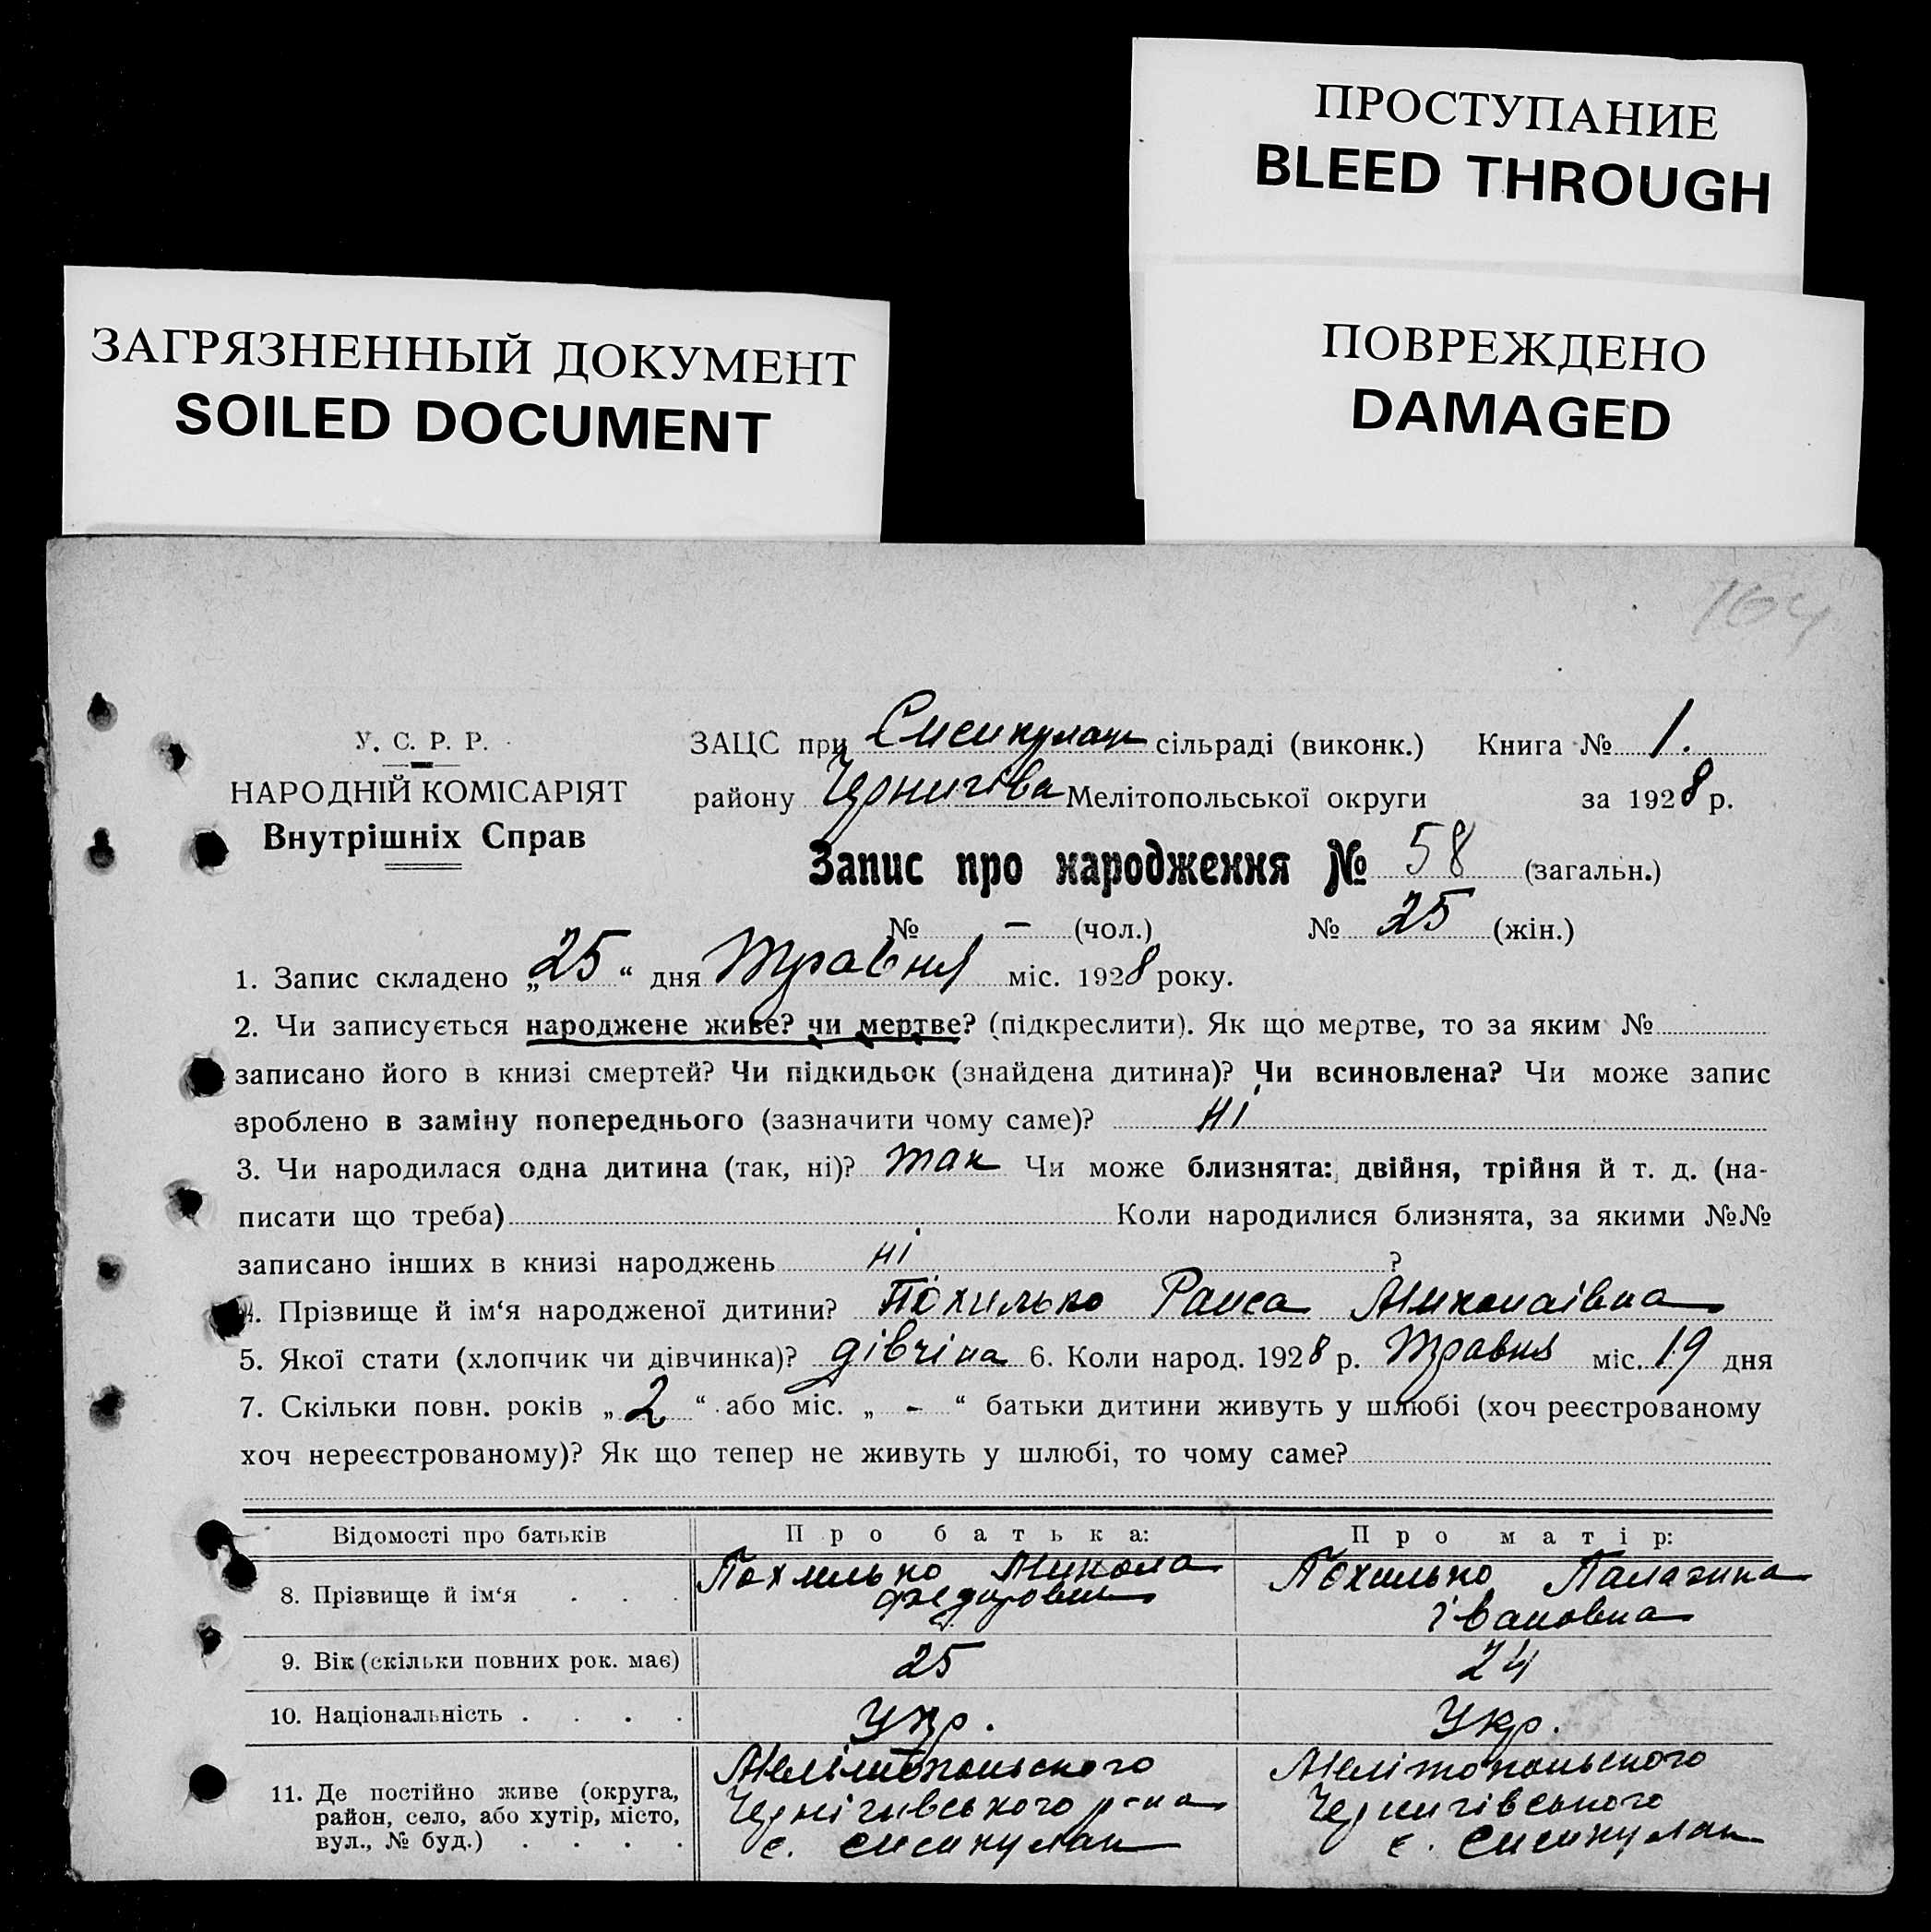 ПРОСТУПАНИЕ
BLEED THROUGH
ЗАГРЯЗНЕННЫЙ ДОКУМЕНТ
SOILED DOCUMENT
ПОВРЕЖДЕНО
DAMAGED
164
У. С. Р. Р.
НАРОДНІЙ КОМІСАРІЯТ
Внутрішніх Справ
ЗАЦС при сільраді (виконк.) Книга № 1.
району Чернигіва Мелітопольської округи за 1928 р.
Запис про народження № 58 (загальн.)
№ – (чол.) № 25 (жін.)
1. Запис складено „25“ дня Травня міс. 1928 року.
2. Чи записується народжене живе? чи мертве? (підкреслити). Як що мертве, то за яким №
записано його в книзі смертей? Чи підкидьок (знайдена дитина)? Чи всиновлена? Чи може запис
зроблено в заміну попереднього (зазначити чому саме)? ні
3. Чи народилася одна дитина (так, ні)? так Чи може близнята: двійня, трійня й т. д. (на-
писати що треба) Коли народилися близнята, за якими №№
записано інших в книзі народжень ні ?
4. Прізвище й ім‘я народженої дитини? Похилько Раиса Миколаівна
5. Якої стати (хлопчик чи дівчинка)? дівчіна 6. Коли народ. 1928 р. Травня міс. 19 дня
7. Скільки повн. років „2“ або міс. „-“ батьки дитини живуть у шлюбі (хоч реєстрованому
хоч нереєстрованому)? Як що тепер не живуть у шлюбі, то чому саме?
Відомості про батьків Про батька: Про матір:
8. Прізвище й ім‘я . . . Похилько Микола Федорович Похилько Палагина Івановна
9. Вік (скільки повних рок. має) 25 24
10. Національність . . . . Укр. Укр.
11. Де постійно живе (округа, район, село, або хутір, місто, вул., № буд.) . . . .
Мелітопольского Мелітопольского
Чернігивського р-на Чернигівського
с. Сисикулак с. Сисикулак